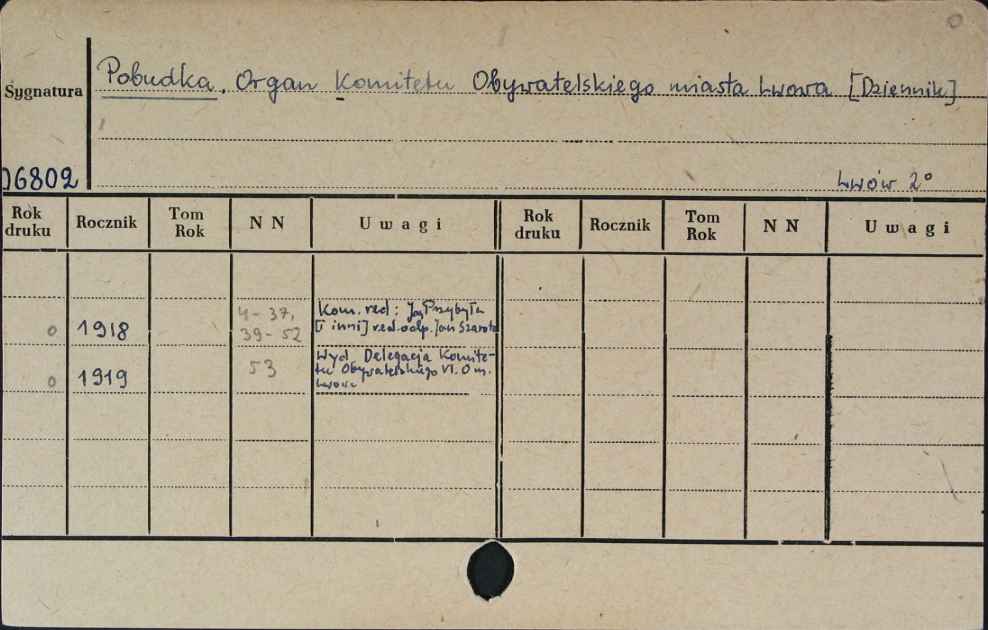 Pobudka. Organ Komitetu Obywatelskiego miasta Lwowa [Dziennik]
Sygnatura
06802
Lwów 2°
Rok druku Rocznik Tom Rok N N Uwagi Rok druku Rocznik Tom Rok N N Uwagi
o 1918 4-37, 39-52 Kom. red: Przybyła
[i inni] red. odp. Jan Szarota
o 1919 53 Wyd. Delegacja Komite-
tu Obywatelskiego VI. O m.
Lwowa